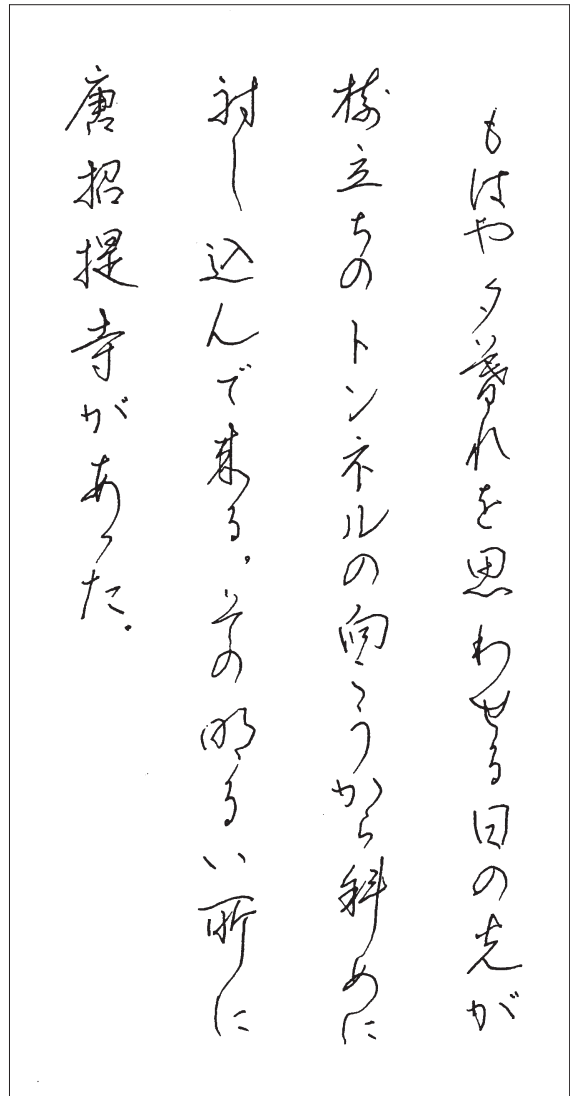 もはや夕暮れを思わせる日の光が
樹立ちのトンネルの向こうから斜めに
射し込んで来る。その明るい所に
唐招提寺があった。